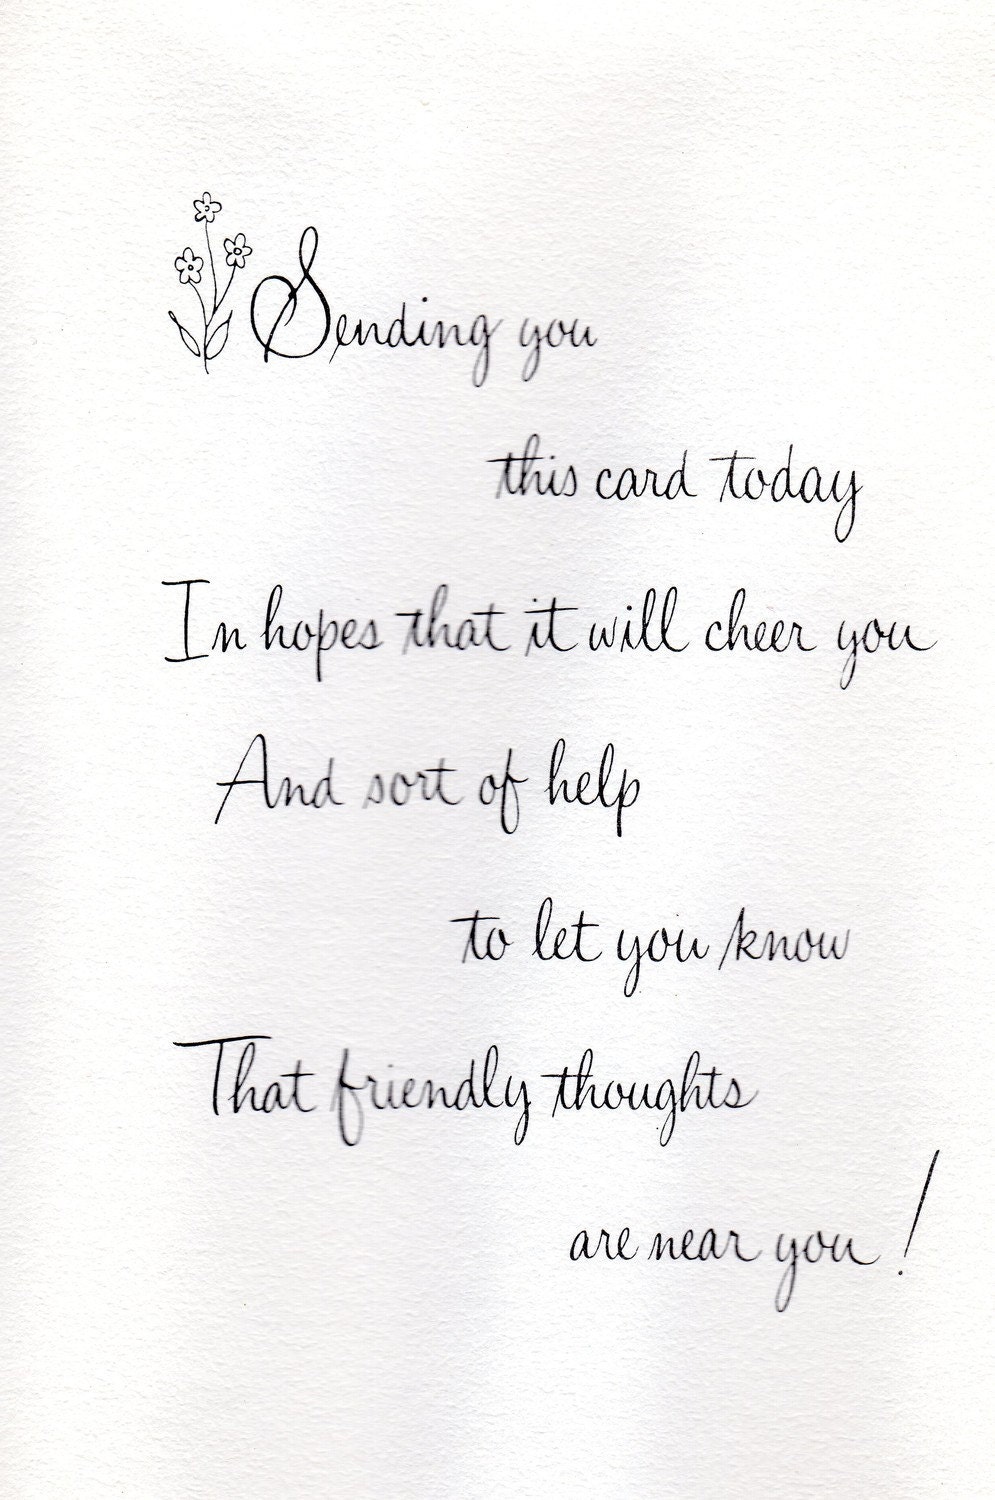 Sending you
this card today
In hopes that it will cheer you
And sort of help
to let you know
That friendly thoughts
are near you!